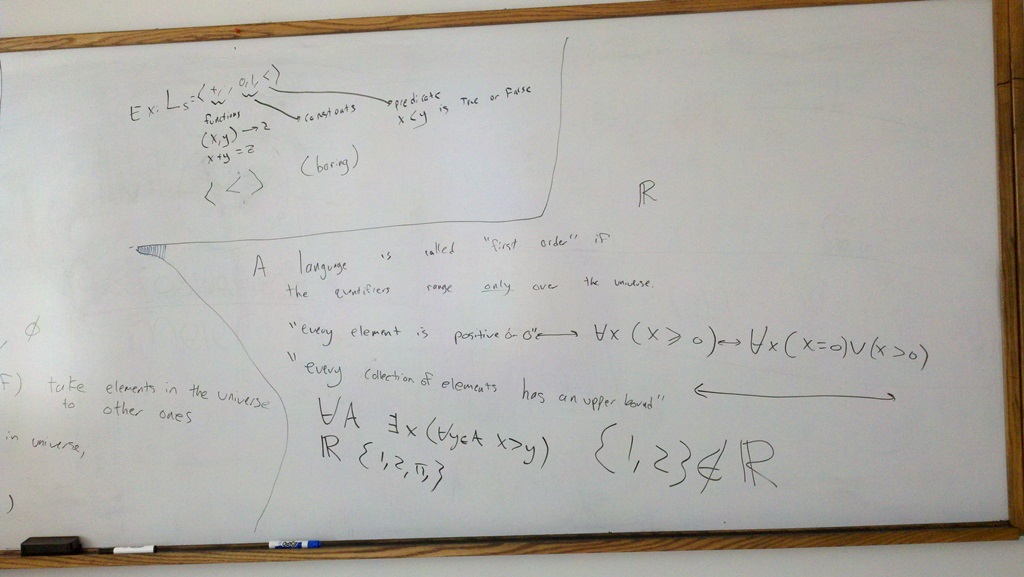 Ex: Ls=<+, , 0,1, <>
functions
constants
predicate
x<y is True or False
(x,y) → z
x+y = z
(boring)
< < >
ℝ
A language is called "first order" if
the quantifiers range only over the universe.
"every element is positive or 0" ↔ ∀x (x ≥ 0) ↔ ∀x (x=0)∨(x>0)
"every collection of elements has an upper bound"
∀A ∃x (∀y∈A x>y)
ℝ {1,2,π,}
{1,2}∉ℝ
, ∅
F) take elements in the universe
to other ones
in universe,
)